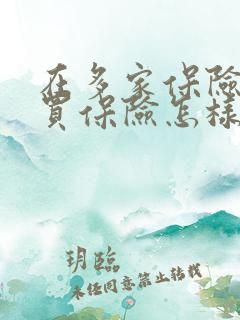 在多家保險
買保險怎樣
玥臨
未经同意禁止转载